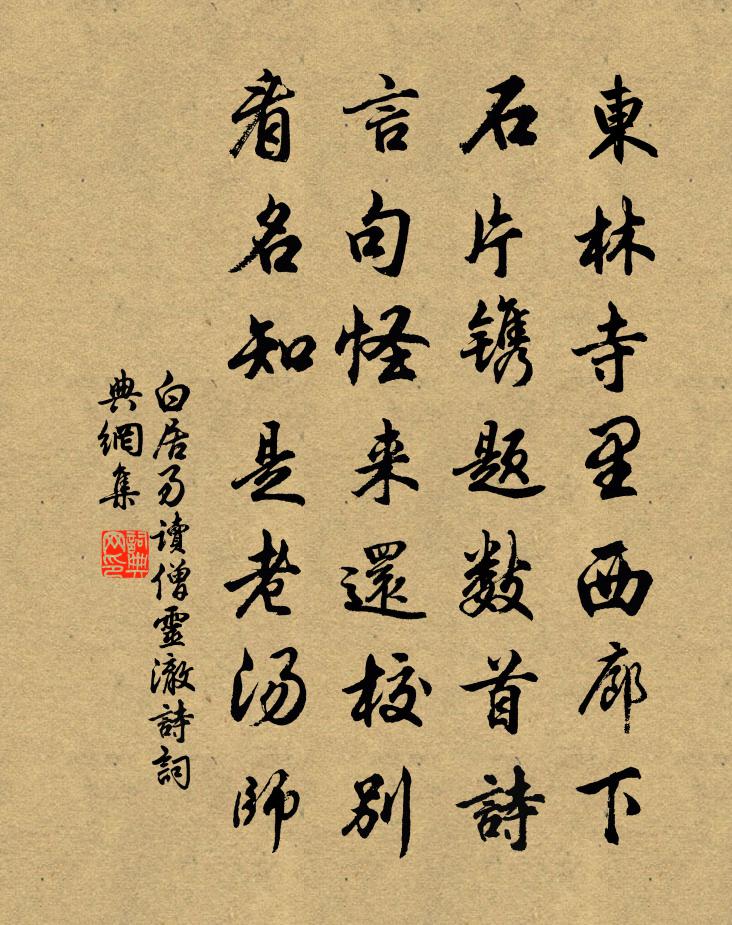 東林寺里西廊下
石片镌題数首詩
言句怪来還校別
看名知是老湯師
白居易讀僧靈澈詩詞
典網集
詞典
网印